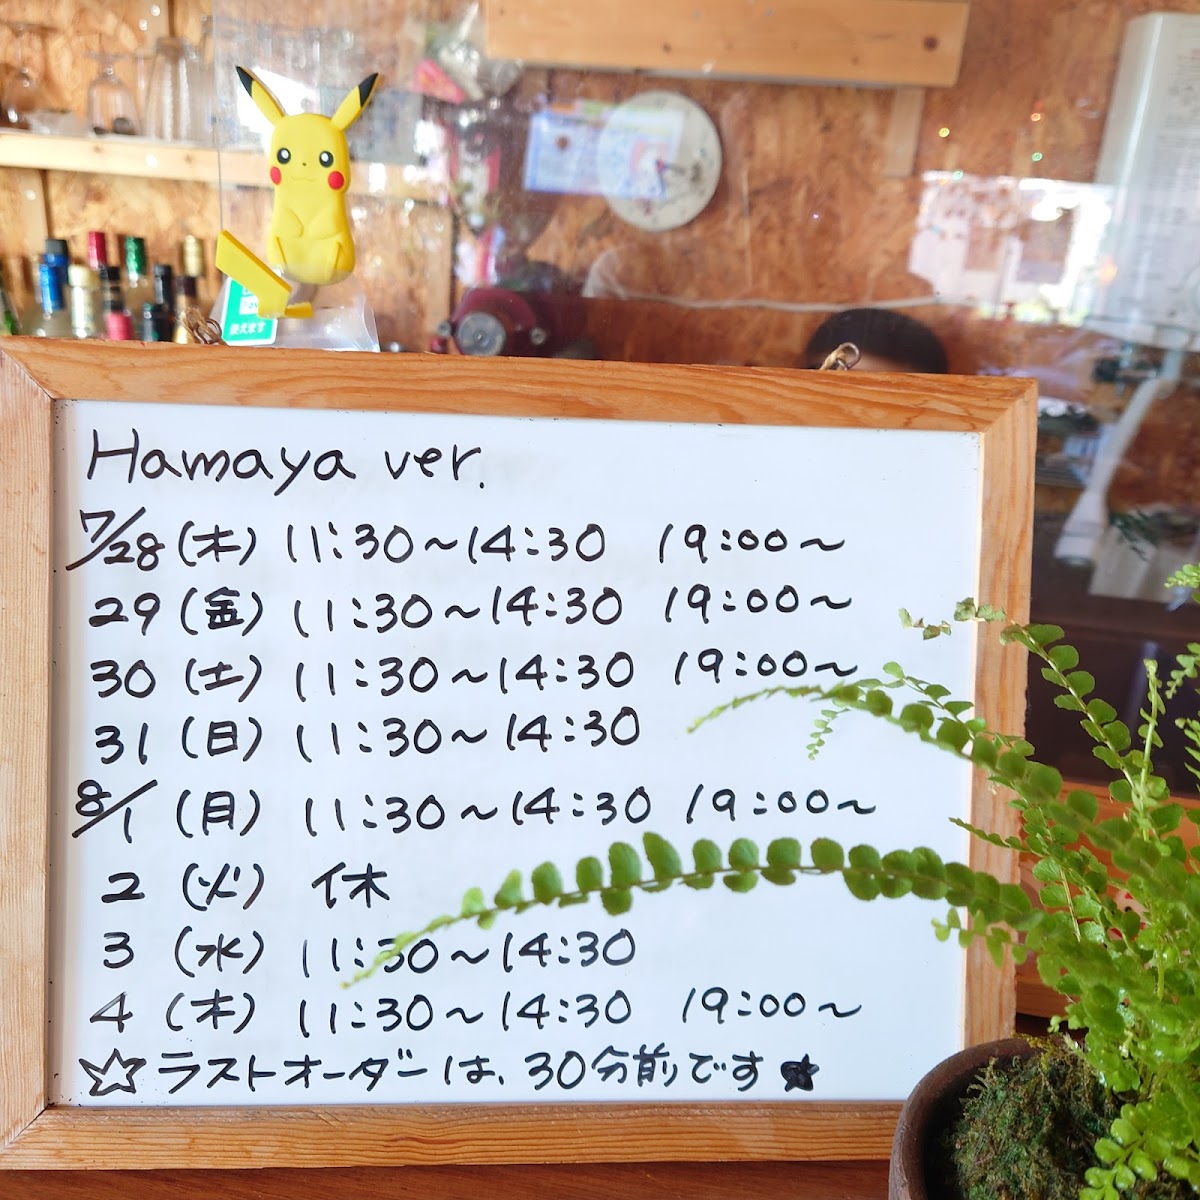 使えます
Hamaya ver.
7/28 (木) 11:30～14:30 19:00～
29 (金) 11:30～14:30 19:00～
30 (土) 11:30～14:30 19:00～
31 (日) 11:30～14:30
8/1 (月) 11:30～14:30 19:00～
2 (火) 休
3 (水) 11:30～14:30
4 (木) 11:30～14:30 19:00～
☆ラストオーダーは、30分前です★